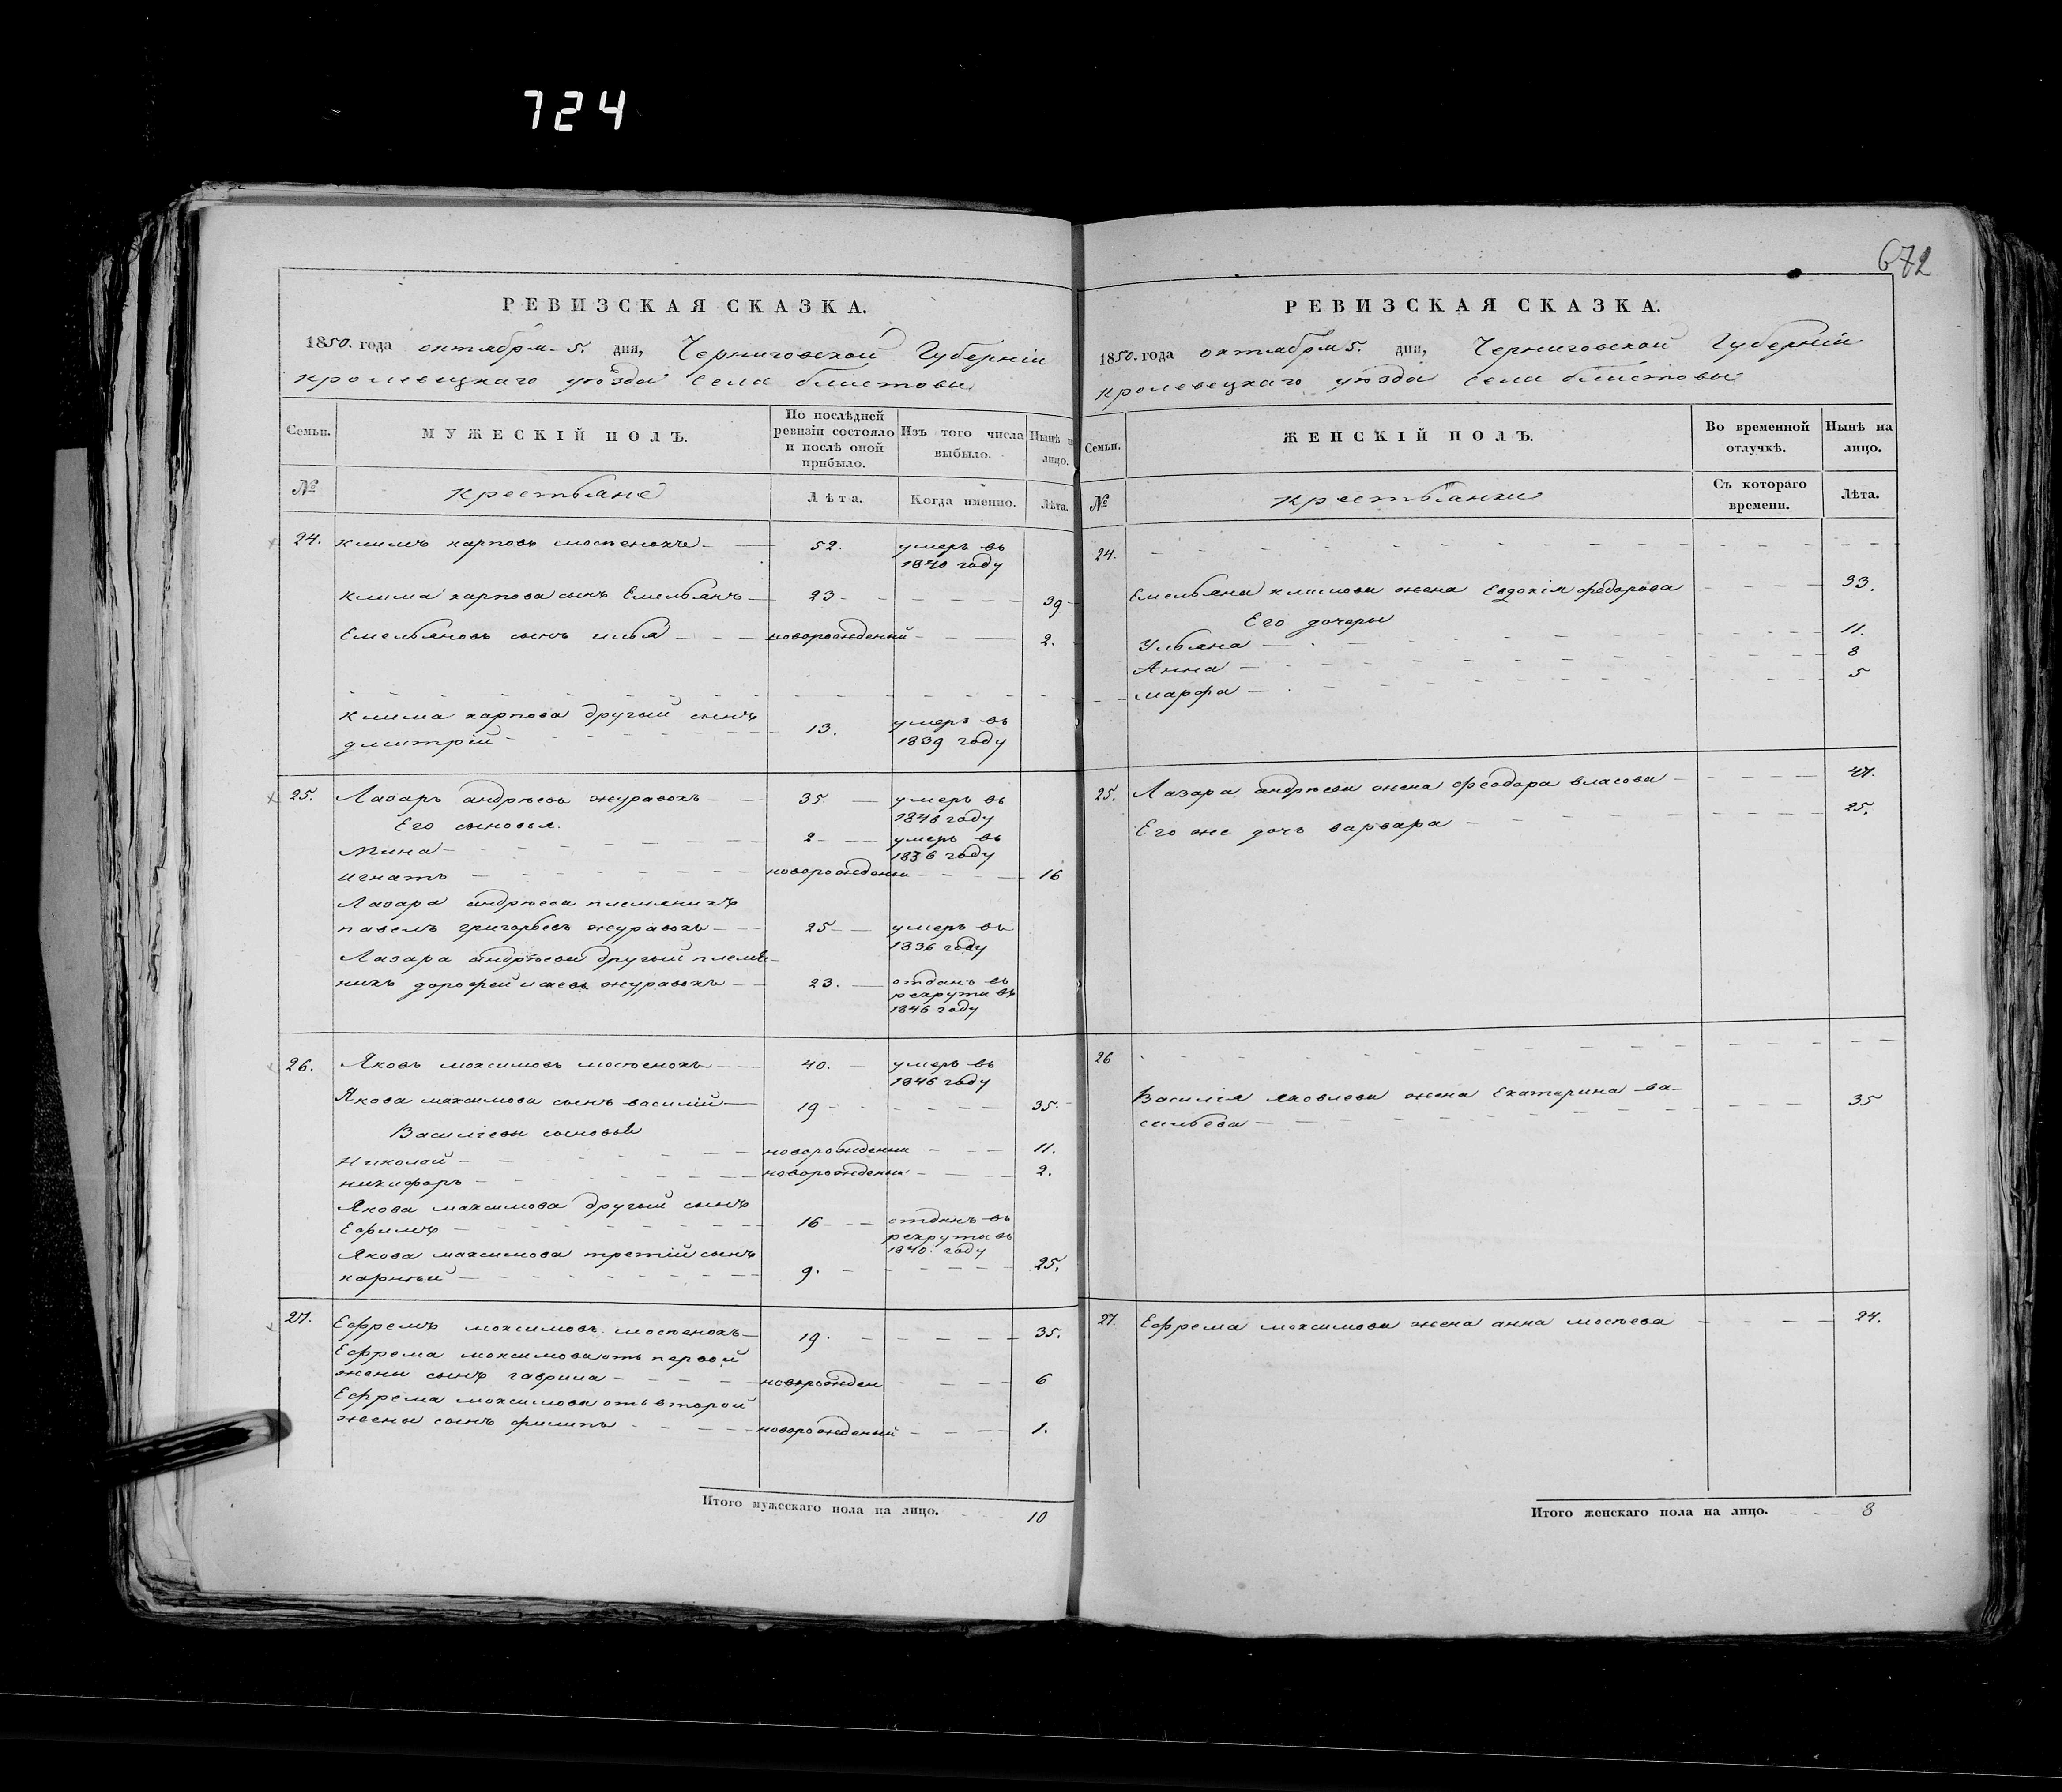 724
672
РЕВИЗСКАЯ СКАЗКА.
1850. года октября 5. дня, Черниговской Губерніи
кролевецкаго уѣзда села блистовы
Семьи.
МУЖЕСКІЙ ПОЛЪ.
По послѣдней ревизіи состояло и послѣ оной прибыло.
Изъ того числа выбыло.
Нынѣ на лицо.
№
крестьяне
Лѣта.
Когда именно.
Лѣта.
24. климъ карповъ мосѣенокъ 52. умеръ въ 1840 году
клима карпова сынъ Емельянъ 23 39
Емельяновъ сынъ илья новорожденый 2.
клима карпова другий сынъ
дмитрій 13. умеръ въ 1839 году
25. Лазарь андрѣевъ журавокъ 35 умеръ въ 1846 году
Его сыновья
Мина 2 умеръ въ 1836 году
игнатъ новорожденый 16
Лазара андрѣева племяникъ
павелъ григорьевъ журавокъ 25 умеръ въ 1836 году
Лазара андрѣева другий племя-
никъ дорофей журавокъ 23. отданъ въ рекруты въ 1846 году
26. Яковъ максимовъ мосѣенокъ 40. умеръ въ 1846 году
Якова максимова сынъ василій 19 35.
Василіевы сыновья
Николай новорожденый 11.
никифоръ новорожденый 2.
Якова максимова другий сынъ
Ефимъ 16 отданъ въ рекруты въ 1840. году
Якова максимова третій сынъ
карнѣй 9. 25.
27. Ефремъ максимовъ мосѣенокъ 19. 35.
Ефрема максимова отъ первой
жены сынъ гаврила новорожден 6
Ефрема максимова отъ второй
жены сынъ филипъ новорожденый 1.
Итого мужескаго пола на лицо. 10
РЕВИЗСКАЯ СКАЗКА.
1850. года октября 5. дня, Черниговской Губерніи
кролевецкаго уѣзда села блистовы
Семьи.
ЖЕНСКІЙ ПОЛЪ.
Во временной отлучкѣ.
Нынѣ на лицо.
№
крестьянки
Съ котораго времени.
Лѣта.
24.
Емельяна климова жена Евдокія федорова 33.
Его дочеры
Ульяна 11.
Анна 8
марфа 5
25. Лазара андрѣева жена феодора власова 47.
Его же дочь варвара 25.
26
Василія яковлева жена Екатерина ва-
сильева 35
27. Ефрема максимова жена анна мосѣева 24.
Итого женскаго пола на лицо. 8